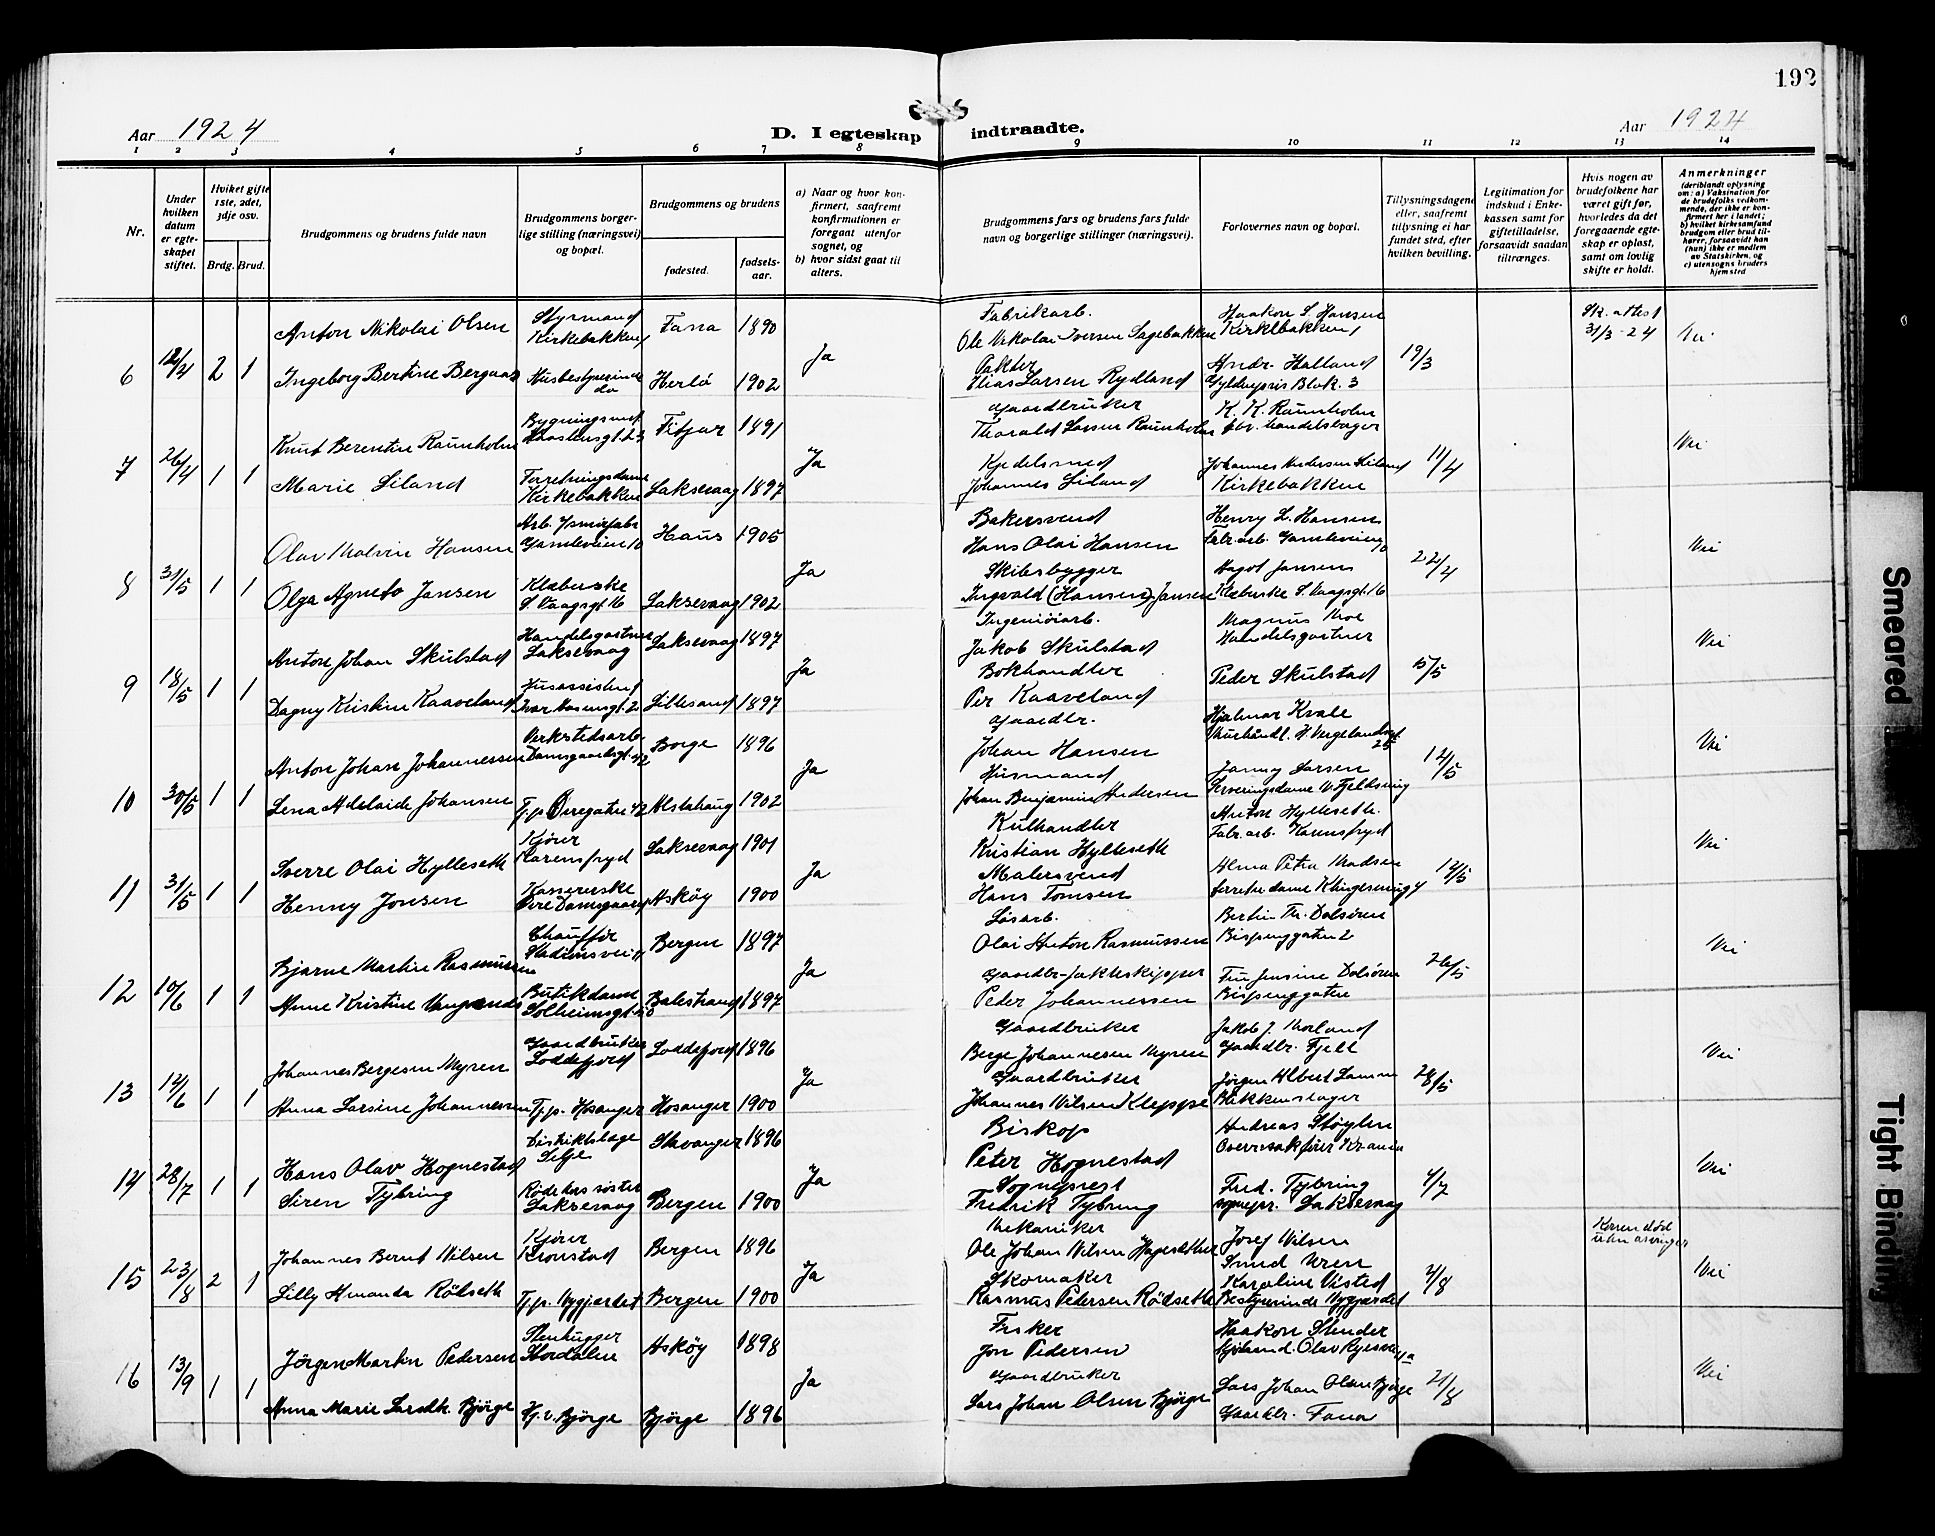 192
Aar 1924
D. I egteskap indtraadte.
Aar 1924
1 2 3 4 5 6 7 8 9 10 11 12 13 14
Nr.
Under hvilken datum er egteskapet stiftet.
Hvilket gifte 1ste, 2det, 3dje osv.
Brdg. Brud.
Brudgommens og brudens fulde navn
Brudgommens borgerlige stilling (næringsvei) og bopæl.
Brudgommens og brudens
fødested. fødselsaar.
a) Naar og hvor konfirmert, saafremt konfirmationen er foregaat utenfor sognet, og
b) hvor sidst gaat til alters.
Brudgommens fars og brudens fars fulde navn og borgerlige stillinger (næringsvei).
Forlovernes navn og bopæl.
Tillysningsdagene eller, saafremt tillysning ei har fundet sted, efter hvilken bevilling.
Legitimation for indskud i Enkekassen samt for giftetilladelse, forsaavidt saadan tiltrænges.
Hvis nogen av brudefolkene har været gift før, hvorledes da det foregaaende egteskap er opløst, samt om lovlig skifte er holdt.
Anmerkninger
(deriblandt oplysning om: a) Vaksination for de brudefolks vedkommende, der ikke er konfirmert her i landet; b) hvilket kirkesamfund brudgom eller brud tilhører, forsaavidt han (hun) ikke er medlem av Statskirken, og c) utensogns bruders hjemsted
6 12/4 2 1
Anton Nikolai Olsen Styrmand Kirkebakken Fana 1890
Ingeborg Bertine Bergaas Husbestyrerinde do Herlø 1902
Ja
Fabrikarb.
Ole Nikolai Iversen Sagebakken
Pakter
Elias Larsen Rydland
Haakon S. Hansen
Kirkebakken
Andr. Halland
Gyldenpris Blok. 3
19/3
Sk. attest
31/3-24
Nei
7 26/4 1 1
Knut Berentin Raunholm Fitjar 1891
Marie Liland Forretningsdame Kirkebakken Laksevaag 1897
Ja
Gaardbruker
Thorald Larsen Raunholm
Kjedelsmed
Johannes Liland
K. K. Raunholm
Johannes Andersen Liland
Kirkebakken
11/4
Nei
8 31/5 1 1
Olav Malvin Hansen Gamleveien 10 Haus 1905
Olga Agneto Jansen Klæberske S. Vaagsgt. 16 Laksevaag 1902
Ja
Bakersvend
Hans Olai Hansen
Skibsbygger
Ingvald (Hansen) Jansen
Henry L. Hansen
Fabr. arb. Gamleveien 10
Magot Jansen
Klæberske S. Vaagsgt. 16
22/4
Nei
9 18/5 1 1
Anton Johan Skulstad Handelsgartner Laksevaag Laksevaag 1897
Dagny Kristine Kaaveland Husassistent Lillesand 1897
Ja
Jakob Skulstad
Bokhandler
Per Kaaveland
Magnus Moe
Handelsgartner
Peder Skulstad
5/5
Nei
10 30/5 1 1
Anton Johan Johannessen Verkstedsarb. Damsgaardsgt. 42 Borge 1896
Lena Adelaide Johansen Tj.p. Øvregaten 42 Alstahaug 1902
Ja
Gaardbr.
Johan Hansen
Husmand
Johan Benjamin Andersen
Hjalmar Kvale
Murhåndl. H. Wergelandsgt 25
Janny Larsen
12/5
Nei
11 31/5 1 1
Sverre Olai Hylleseth Kjører Karensfryd Laksevaag 1901
Henny Jonsen Kassererske Øvre Damsgaard Askøy 1900
Ja
Kulhandler
Kristian Hylleseth
Malersvend
Hans Tomsen
Anton Hylleseth
Fabr. arb. Karensfryd
Alma Petra Madsen
12/5
Nei
12 10/6 1 1
Bjarne Martin Rasmussen Chauffør Bergen 1897
Anne Kristine Butikdame Solheimsgt. Balestrand 1897
Ja
Løsarb.
Olai Anton Rasmussen
Gaardbr-Jakteskipper
Peder Johannessen
Bertin Th. Dalsøren
Bispenggaten 2
Fru Jensine Dalsøren
Bispenggaten
26/5
Nei
13 12/6 1 1
Johannes Bergesen Myren Gaardbruker Loddefjord Loddefjord 1896
Anna Larsine Johannessen Tj.p. Hosanger Hosanger 1900
Ja
Gaardbruker
Berge Johannesen Myren
Gaardbruker
Johannes Nilsen Kleppe
Jakob J. Morland
Gaardbr. Fjell
Jørgen Albert Lamm
Blikkenslager
28/5
Nei
14 28/7 1 1
Hans Olav Hognestad Distriktslæge Selje Stavanger 1896
Siren Tybring Røde kors søster Laksevaag Bergen 1900
Ja
Biskop
Peter Hognestad
Sogneprest
Fredrik Tybring
Andreas Støylen
Fred. Tybring
sognepr. Laksevaag
4/7
Nei
15 23/8 2 1
Johannes Bernt Nilsen Kjører Kronstad Bergen 1896
Lilly Amanda Rödseth Tj.p. Nygjærdet Bergen 1900
Ja
Mekaniker
Ole Johan Nilsen
Skomaker
Rasmus Pedersen Rödseth
Josef Nilsen
Smed Uren
Karoline Visted
Bestyrerinde Nygjærdet
4/8
Konen død
uten arvinger
Nei
16 13/9 1 1
Jørgen Martin Pedersen Stenhugger Stordalen Askøy 1898
Anna Marie Larsdtr. Bjørge Hj.v. Bjørge Bjørge 1896
Ja
Fisker
Jon Pedersen
Gaardbruker
Lars Johan Olsen Bjørge
Haakon Stender
Lars Johan Olsen Bjørge
Gaardbr. Fana
21/8
Nei
Smeared
Tight Binding